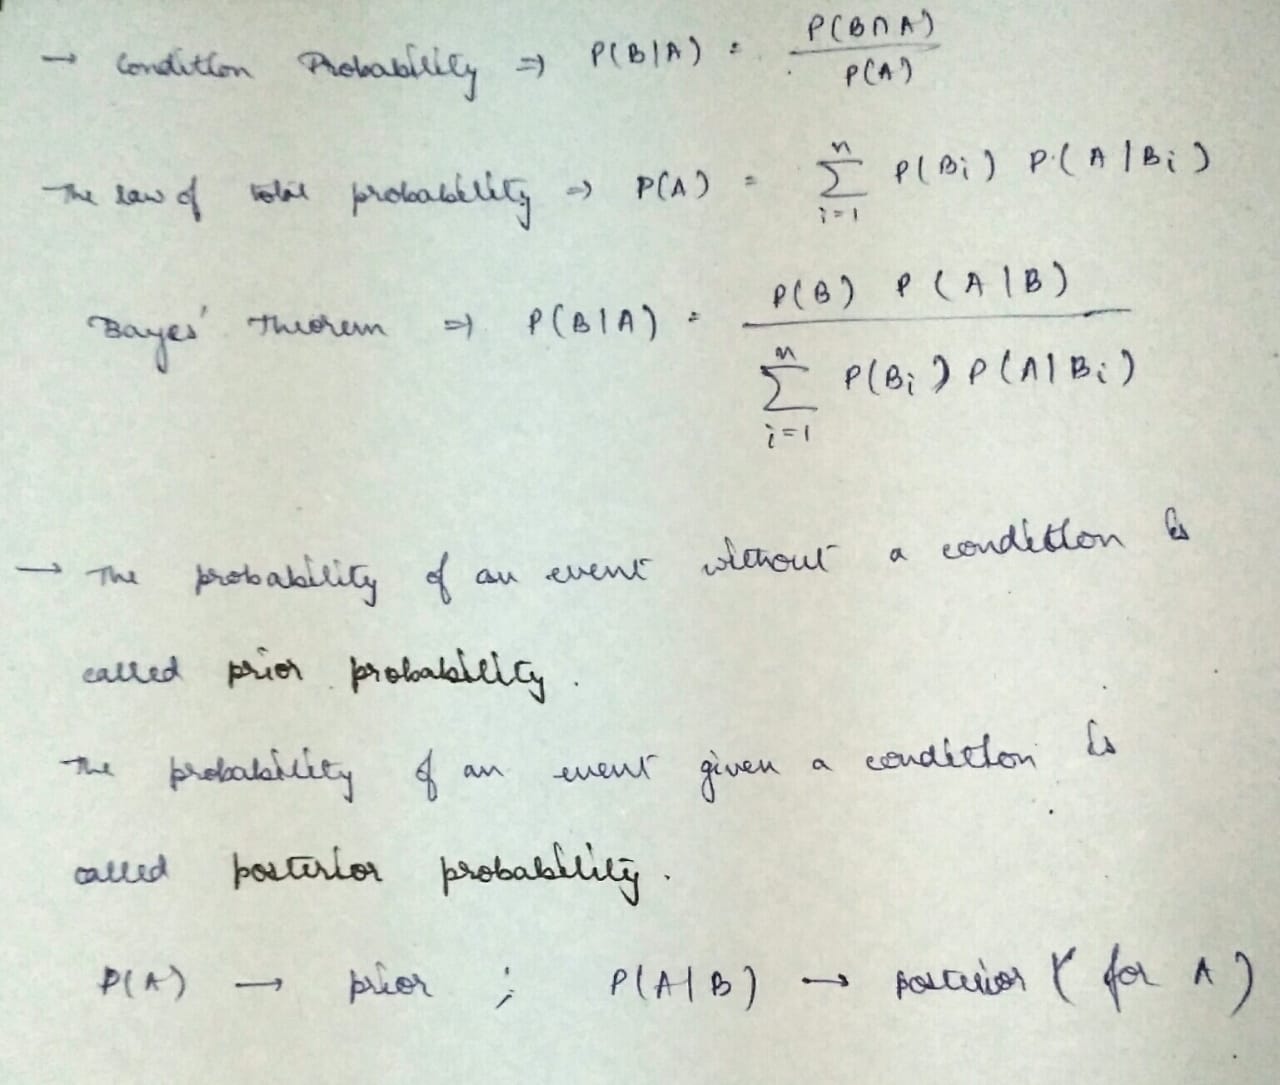 → Condition Probability ⇒ P(B|A) = P(B∩A) / P(A)
The law of total probability ⇒ P(A) = n Σ i=1 P(Bi) P(A|Bi)
Bayes' Theorem ⇒ P(B|A) = P(B) P(A|B) / n Σ i=1 P(Bi) P(A|Bi)
→ The probability of an event without a condition is
called prior probability.
The probability of an event given a condition is
called posterior probability.
P(A) → prior ; P(A|B) → posterior ( for A )